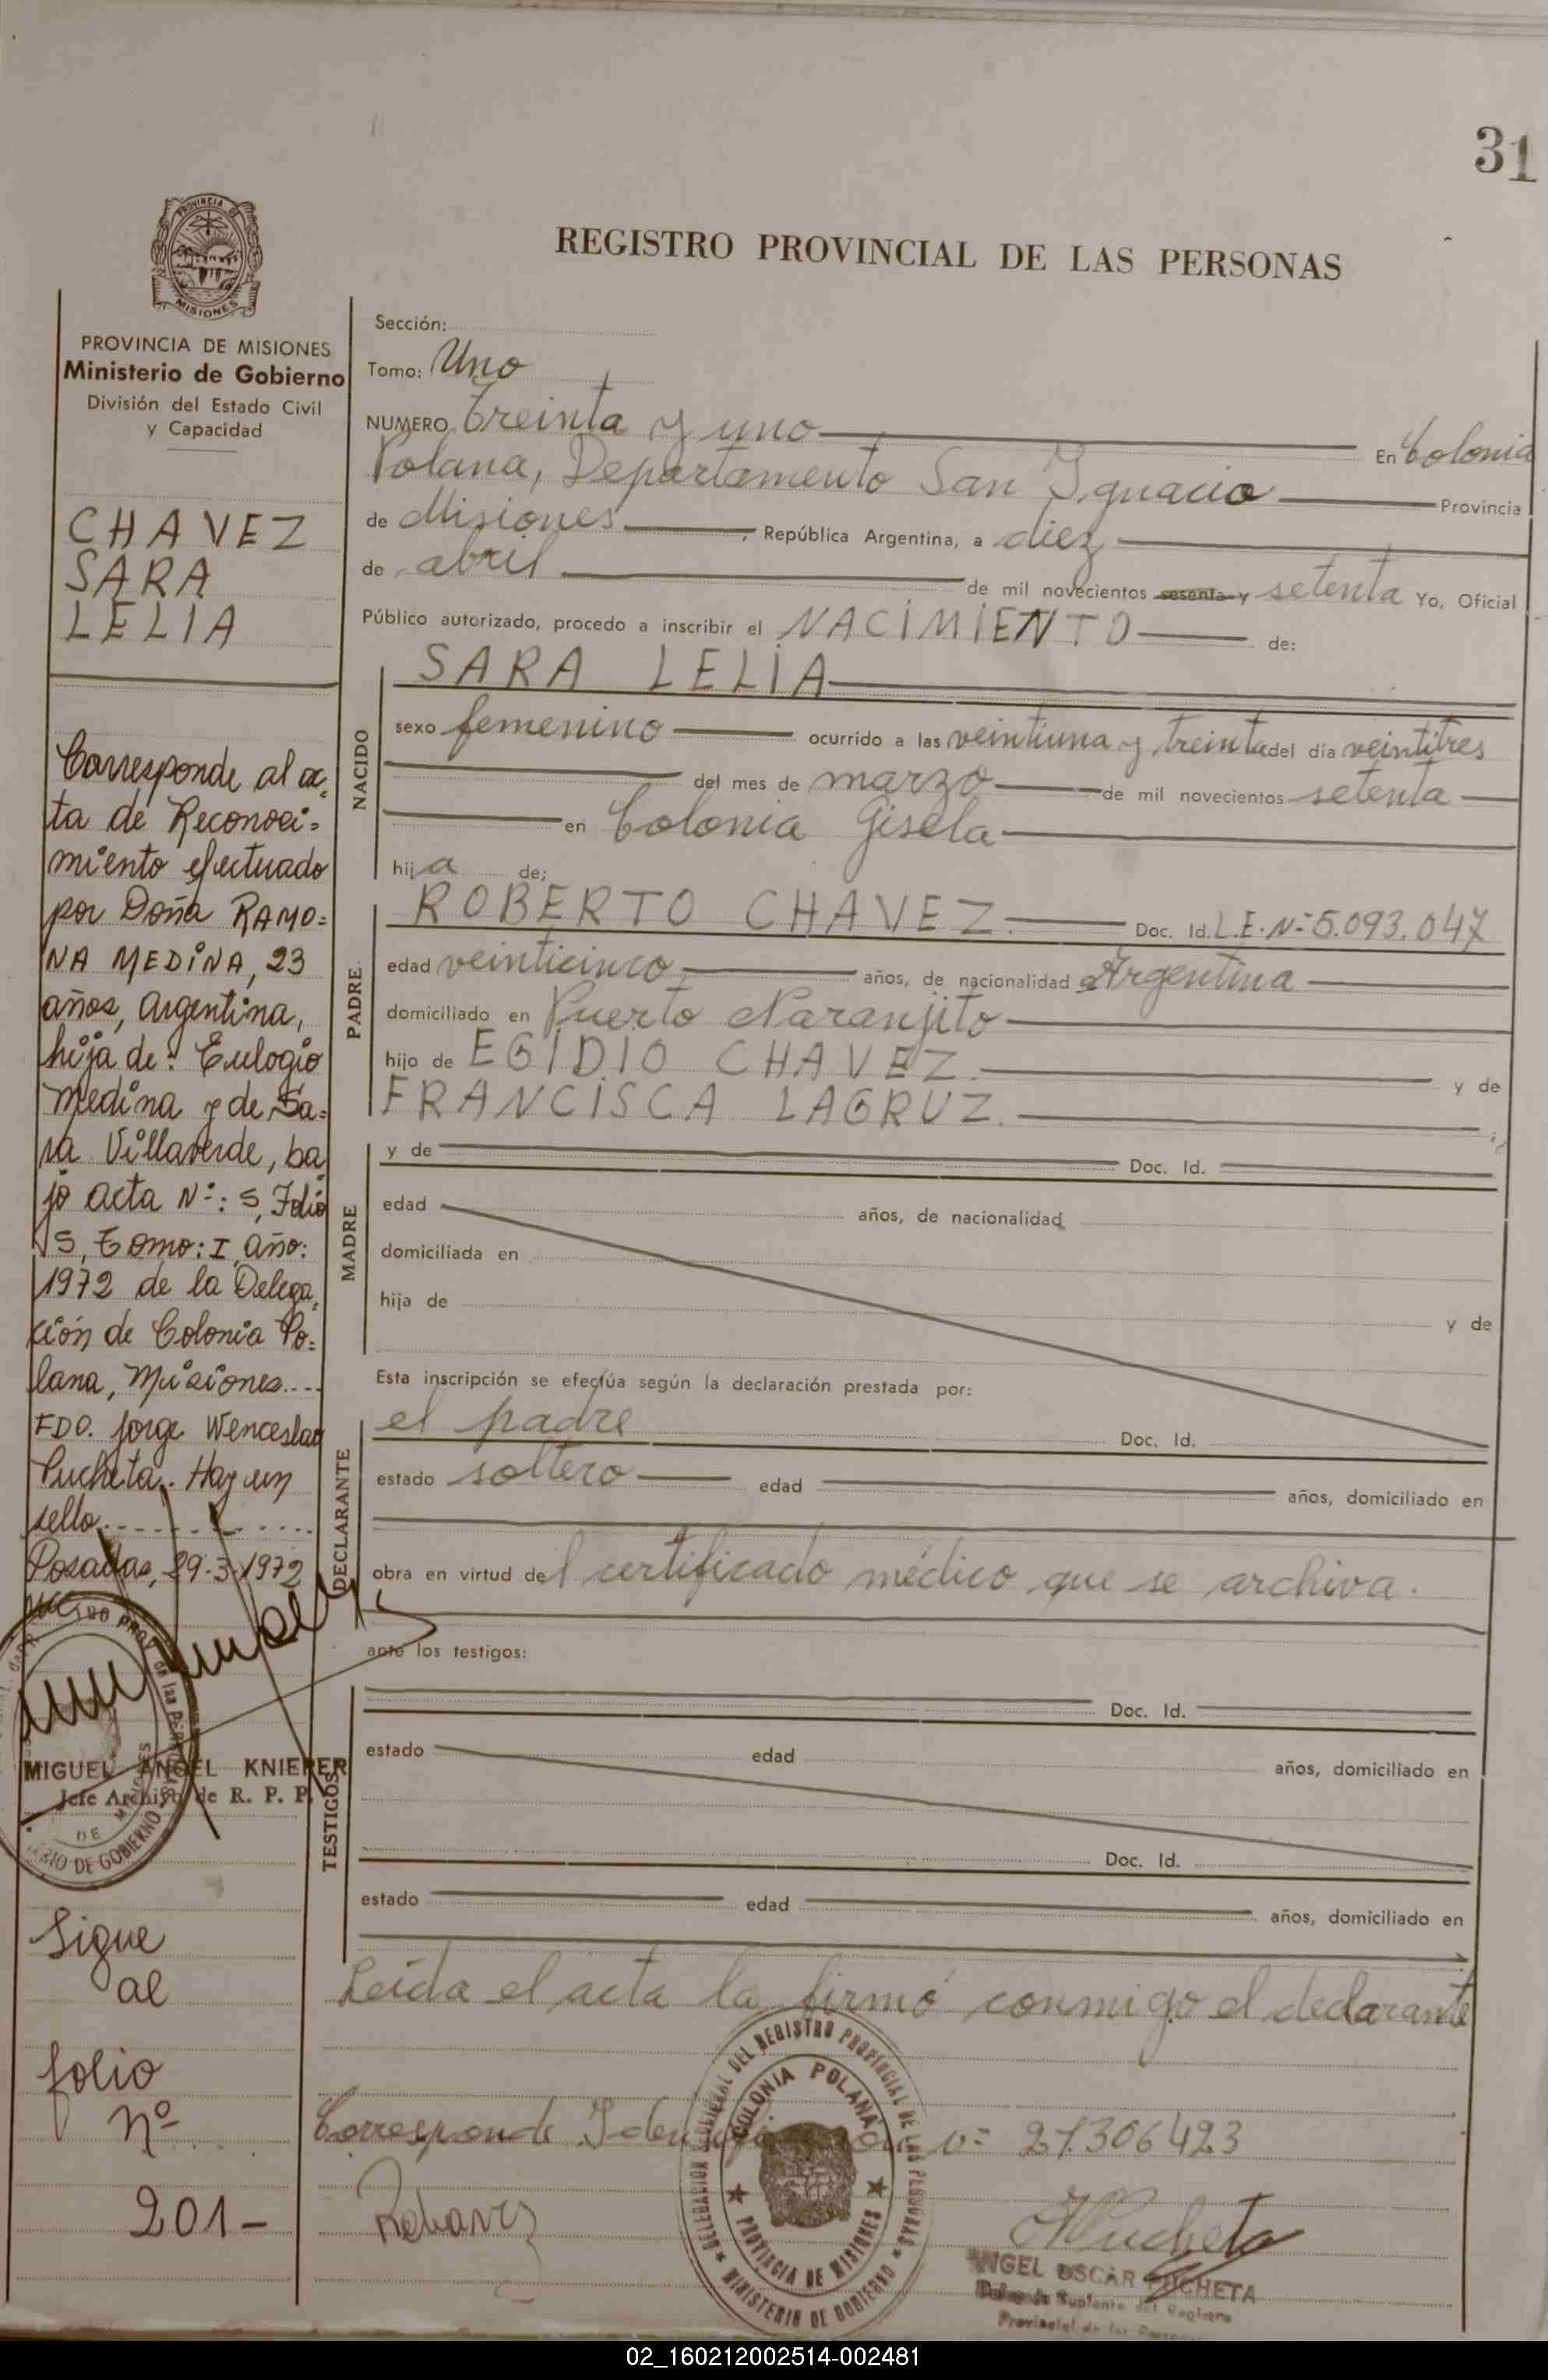 31
PROVINCIA DE
MISIONES
REGISTRO PROVINCIAL DE LAS PERSONAS
PROVINCIA DE MISIONES
Ministerio de Gobierno
División del Estado Civil
y Capacidad
CHAVEZ
SARA
LELIA
Corresponde al ac-
ta de Reconoci=
miento efectuado
por Doña RAMO=
NA MEDINA, 23
años, Argentina,
hija de: Eulogio
Medina y de Sa=
ra Villaverde, ba
jo acta Nº: 5, Folio
5, Tomo: I, año:
1972 de la Delega-
ción de Colonia Po=
lana, Misiones....
FDO. Jorge Wenceslao
Pucheta. Hay un
sello.
Posadas, 29-3-1972
MIGUEL ANGEL KNIEPER
Jefe Archivo de R. P. P.
Sigue
al
folio
nº
201-
Sección:
Tomo: Uno
NUMERO Treinta y uno En Colonia
Polana, Departamento San Ignacio Provincia
de Misiones, República Argentina, a diez
de abril de mil novecientos sesenta y setenta Yo, Oficial
Público autorizado, procedo a inscribir el NACIMIENTO de:
NACIDO
SARA LELIA
sexo femenino ocurrido a las veintiuna y treinta del día veintitres
del mes de marzo de mil novecientos setenta
en Colonia Gisela
hija de:
PADRE
ROBERTO CHAVEZ. Doc. Id. L.E. Nº 5.093.047
edad veinticinco años, de nacionalidad Argentina
domiciliado en Puerto Naranjito
hijo de EGIDIO CHAVEZ. y de
FRANCISCA LAGRUZ.
MADRE
y de Doc. Id.
edad años, de nacionalidad
domiciliada en
hija de y de
Esta inscripción se efectúa según la declaración prestada por:
DECLARANTE
el padre Doc. Id.
estado soltero edad años, domiciliado en
obra en virtud del certificado médico que se archiva.
ante los testigos:
TESTIGOS
Doc. Id.
estado edad años, domiciliado en
Doc. Id.
estado edad años, domiciliado en
Leída el acta la firmó conmigo el declarante
Corresponde Identificación nº 21306423
DELEGACION REGIONAL DEL REGISTRO PROVINCIAL DE LAS PERSONAS
COLONIA POLANA
PROVINCIA DE MISIONES
MINISTERIO DE GOBIERNO
RChavez
Pucheta
ANGEL OSCAR PUCHETA
Suplente del Registro
Provincial de las
02_160212002514-002481